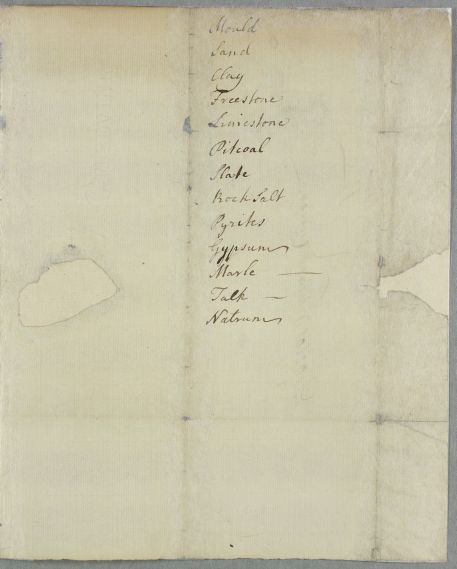 Mould
Sand
Clay
Freestone
Limestone
Pitcoal
Slate
Rock Salt
Pyrites
Gypsum
Marle —
Talk —
Natrum